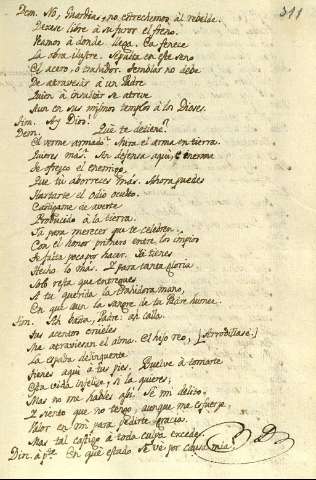 311
Dem. No, Guardias, no estrechemos al rebelde.
Dexese libre à su furor el freno.
Veamos à donde llega. Ea fenece
La obra ilustre. Sepulta en este seno
El acero, ò trahidor. Temblar no debe
De atravesar à un Padre
Quien à insultar se atreve
Aun en sus mismos templos à los Dioses.
Sim. Ay Dios!
Dem. Què te detiene?
El verme armado? Mira el arma en tierra.
Quieres mas? Sin defensa aqui, è enerme
Se ofrece el enemigo,
Que tu aborreces mas. Ahora puedes
Hartarte el odio oculto.
Castigame de averte
Producido à la tierra.
Ya para merecer que te celebren
Con el honor primero entre los impios
Te falta poco por hacer. Ya tienes
Hecho lo mas. Y para tanta gloria
Solo resta que entregues
A tu querida la trahidora mano,
En que aun la sangre de tu Padre humea.
Sim. Ah basta, Padre: ah calla.
Tus acentos crueles
Me atraviesan el alma. El hijo reo, [Arrodillase.]
La espada delinquente
Tienes aqui à tus pies. Vuelve à tomarte
Esta vida infeliz, si la quieres;
Mas no me hables asi. Sè mi delito.
Y siento que no tengo, aunque me esfuerze,
Valor en mi para pedirte gracia.
Mas tal castigo à toda culpa excede.
Dir. à pte. En què estado se vè por causa mia.